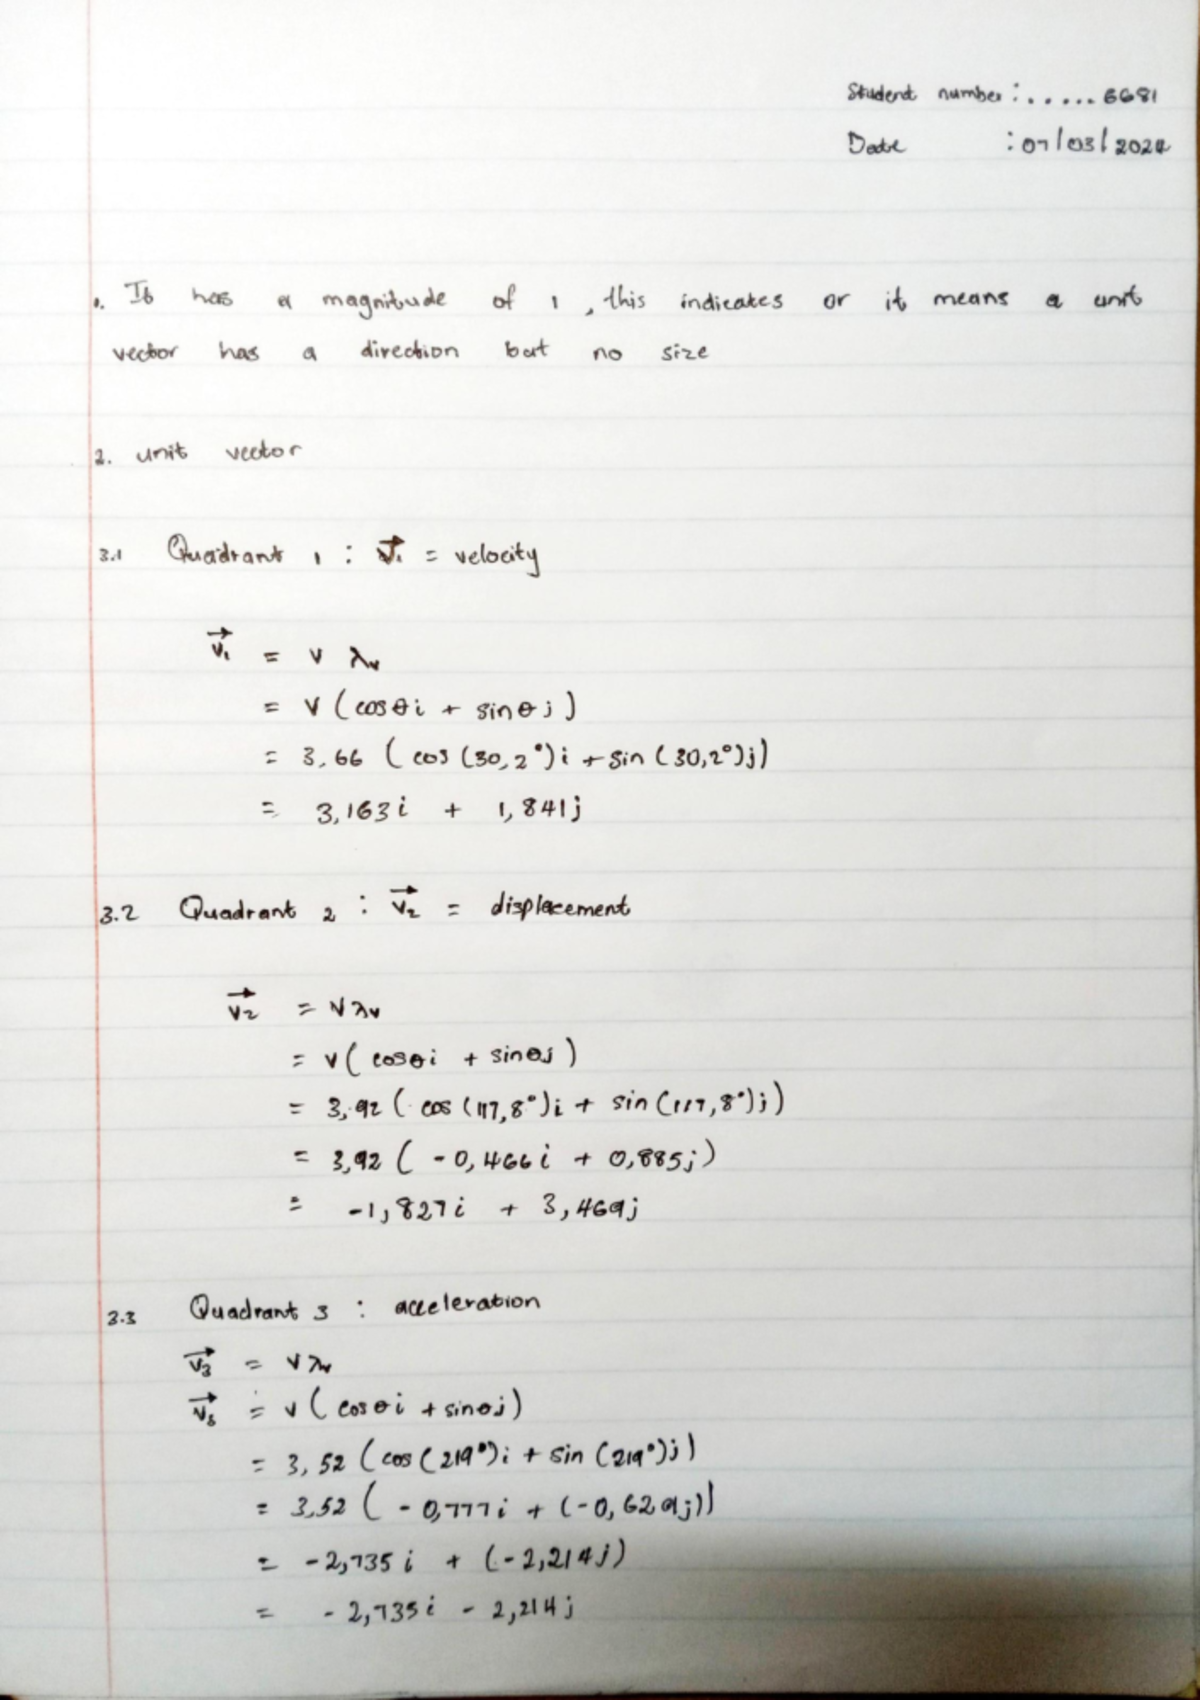 Student number : ..... 6681
Date : 07/03/2024
1. It has a magnitude of 1, this indicates or it means a unit
vector has a direction but no size
2. unit vector
3.1 Quadrant 1 : V₁⃗ = velocity
V₁⃗ = v λv
= v (cosθi + sinθj)
= 3,66 (cos (30,2°)i + sin (30,2°)j)
= 3,163i + 1,841j
3.2 Quadrant 2 : V₂⃗ = displacement
V₂⃗ = vλv
= v( cosθi + sinθj )
= 3,92 ( cos (117,8°)i + sin (117,8°)j)
= 3,92 ( -0,466i + 0,885j)
= -1,827i + 3,469j
3.3 Quadrant 3 : acceleration
V₃⃗ = vλv
V₃⃗ = v ( cosθi + sinθj)
= 3,52 (cos (219°)i + sin (219°)j)
= 3,52 ( -0,777i + (-0,629j))
= -2,735i + (-2,214j)
= -2,735i - 2,214j